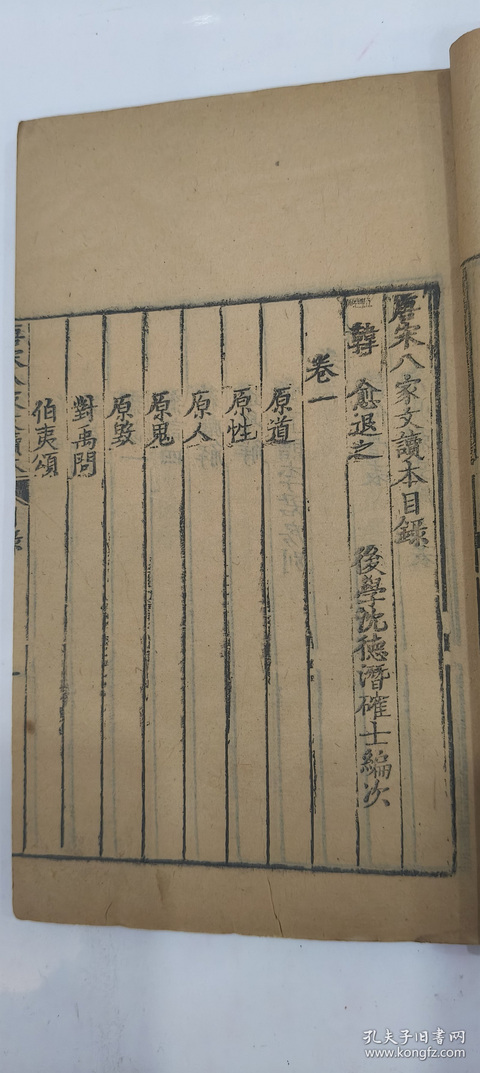 唐宋八家文讀本目錄
韓 愈退之 後學沈德潛確士編次
卷一
原道
原性
原人
原鬼
原毀
對禹問
伯夷頌
孔夫子旧书网
www.kongfz.com